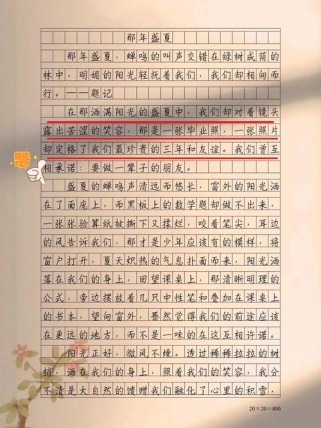 那年盛夏
那年盛夏，蝉鸣的叫声交错在绿树成荫的
林中，明媚的阳光轻抚着我们，我们却相向而
行。——题记
在那洒满阳光的盛夏中，我们却对着镜头
露出苦涩的笑容，那是一张毕业照，一张照片
却定格了我们最珍贵的三年和友谊。我们曾互
相承诺：要做一辈子的朋友。
盛夏的蝉鸣声清远而悠长，窗外的阳光洒
在了面庞上，而黑板上的数学题却做不出来，
一张张验算纸被撕下又揉烂，咬着笔尖，耳边
的风告诉我们，那才是少年应该有的模样，将
窗户打开，夏天炽热的气息扑面而来，阳光洒
落在我们的身上，回望课桌上，那清晰明理的
公式，旁边摆放着几只中性笔和叠加在课桌上
的书本，望向窗外，蓦然觉得我们的前途应该
在更远的地方，而不是一味的在这互相许诺。
阳光正好，微风不燥。透过稀稀拉拉的树
梢，洒在我们的身上，照着我们的笑容，我分
不清是大自然的馈赠我们融化了心里的积雪，
20×20=400